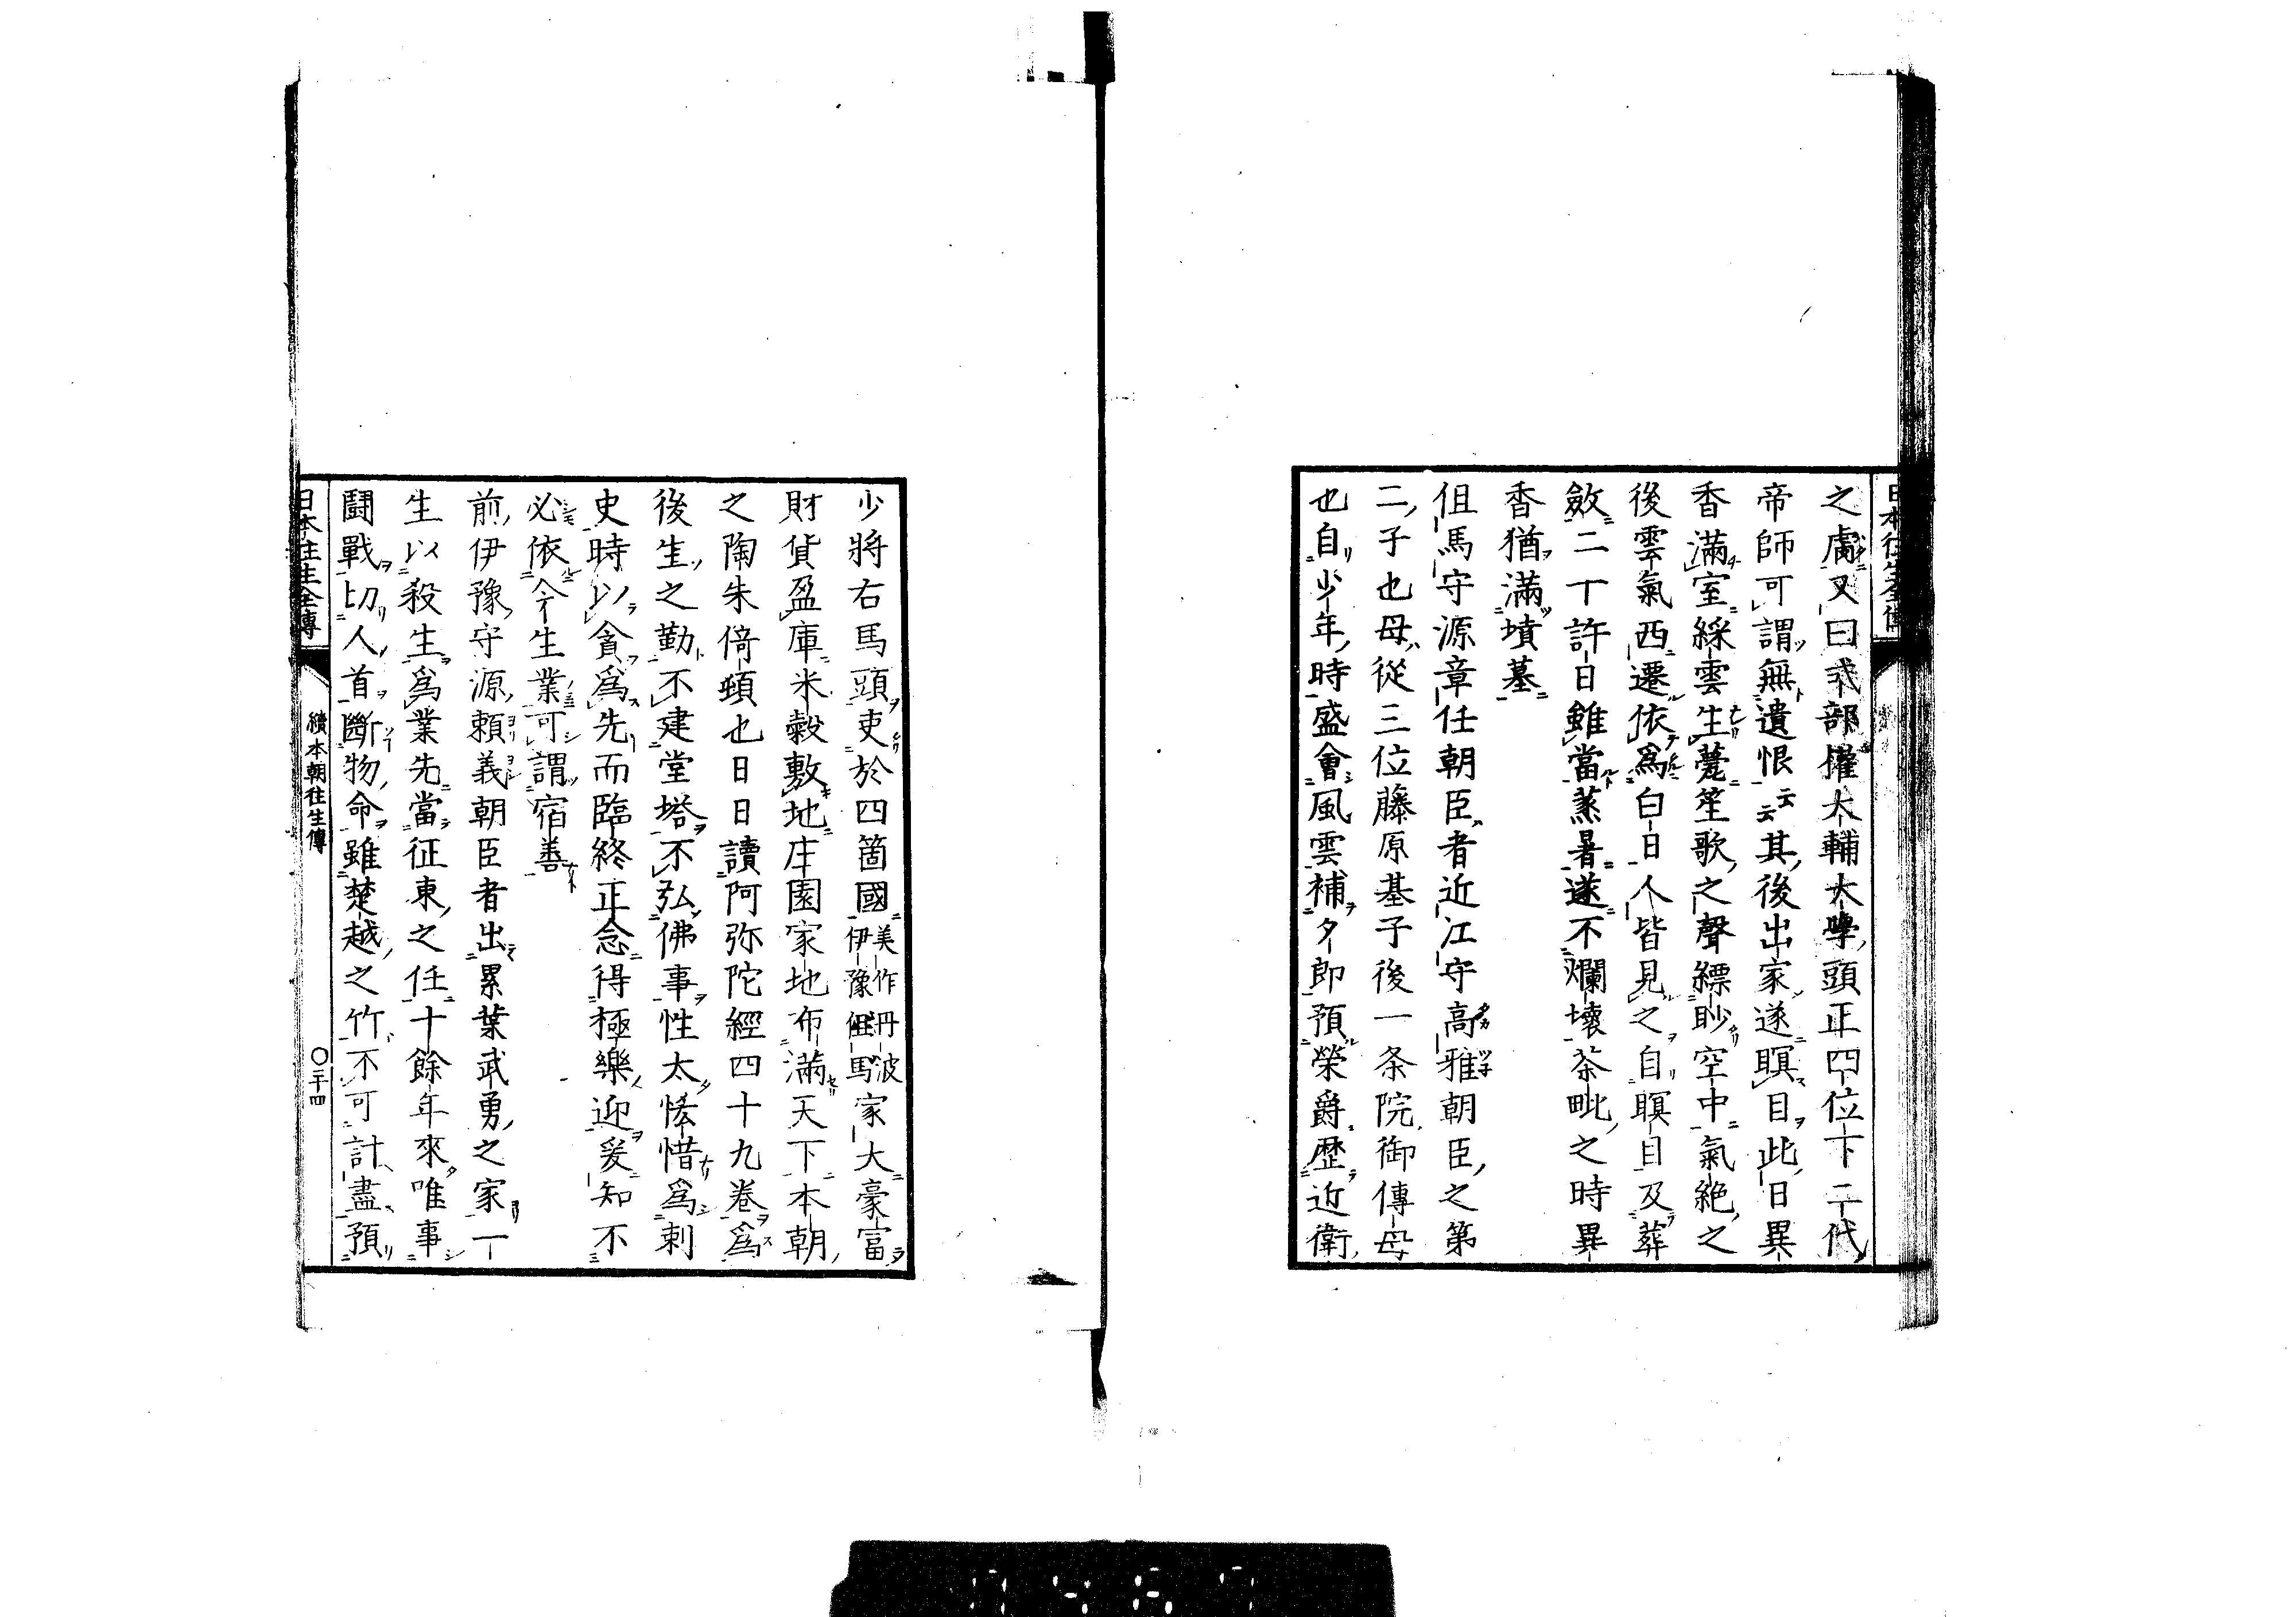 日本往生全傳
之處又曰式部權大輔大學頭正四位下二代
帝師可謂無遺恨云云其後出家遂瞑目此日異
香滿室綵雲生甍笙歌之聲縹眇空中氣絶之
後雲氣西遷依爲白日人皆見之自瞑目及葬
斂二十許日雖當蒸暑遂不爛壞茶毗之時異
香猶滿墳墓
但馬守源章任朝臣者近江守高雅朝臣之第
二子也母從三位藤原基子後一条院御傳母
也自少年時盛會風雲補夕郎預榮爵歷近衛
少將右馬頭吏於四箇國美作丹波伊豫但馬家大豪富
財貨盈庫米穀敷地庄園家地布滿天下本朝
之陶朱倚頓也日日讀阿弥陀經四十九卷爲
後生之勤不建堂塔不弘佛事性太恡惜爲刺
史時以貪爲先而臨終正念得極樂迎爰知不
必依今生業可謂宿善
前伊豫守源頼義朝臣者出累葉武勇之家一
生以殺生爲業先當征東之任十餘年來唯事
鬪戰切人首斷物命雖楚越之竹不可計盡預
日本往生全傳
續本朝往生傳
〇二十四